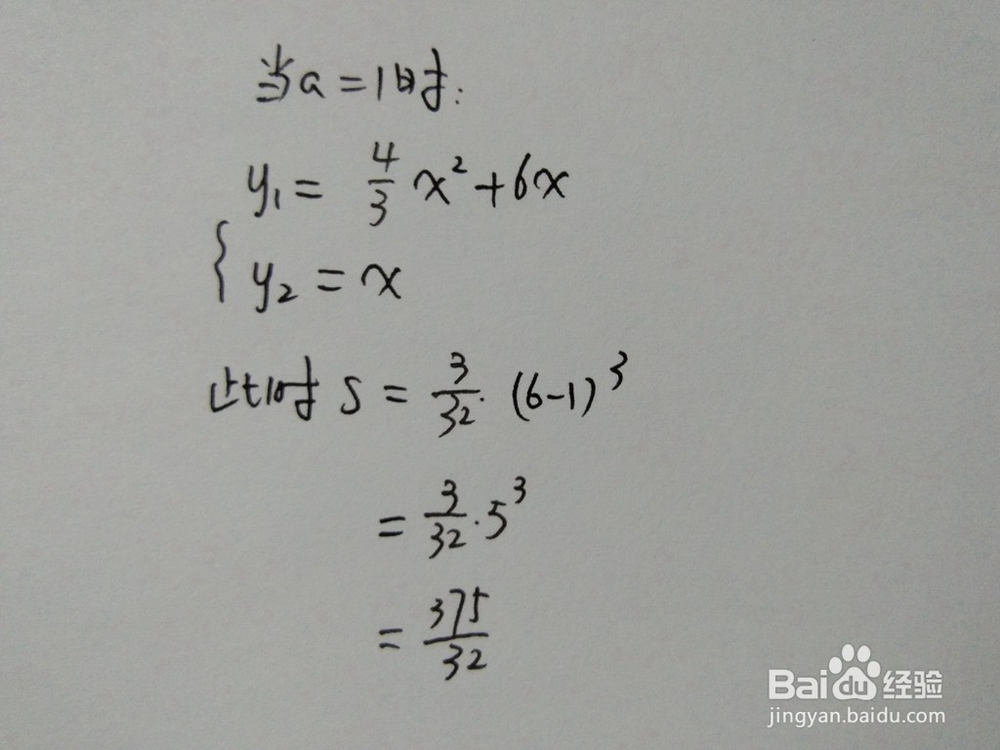 当a=1时:
y₁= 4/3 x²+6x
{ y₂=x
此时 S= 3/32·(6-1)³
= 3/32·5³
= 375/32
Baidu经验
jingyan.baidu.com